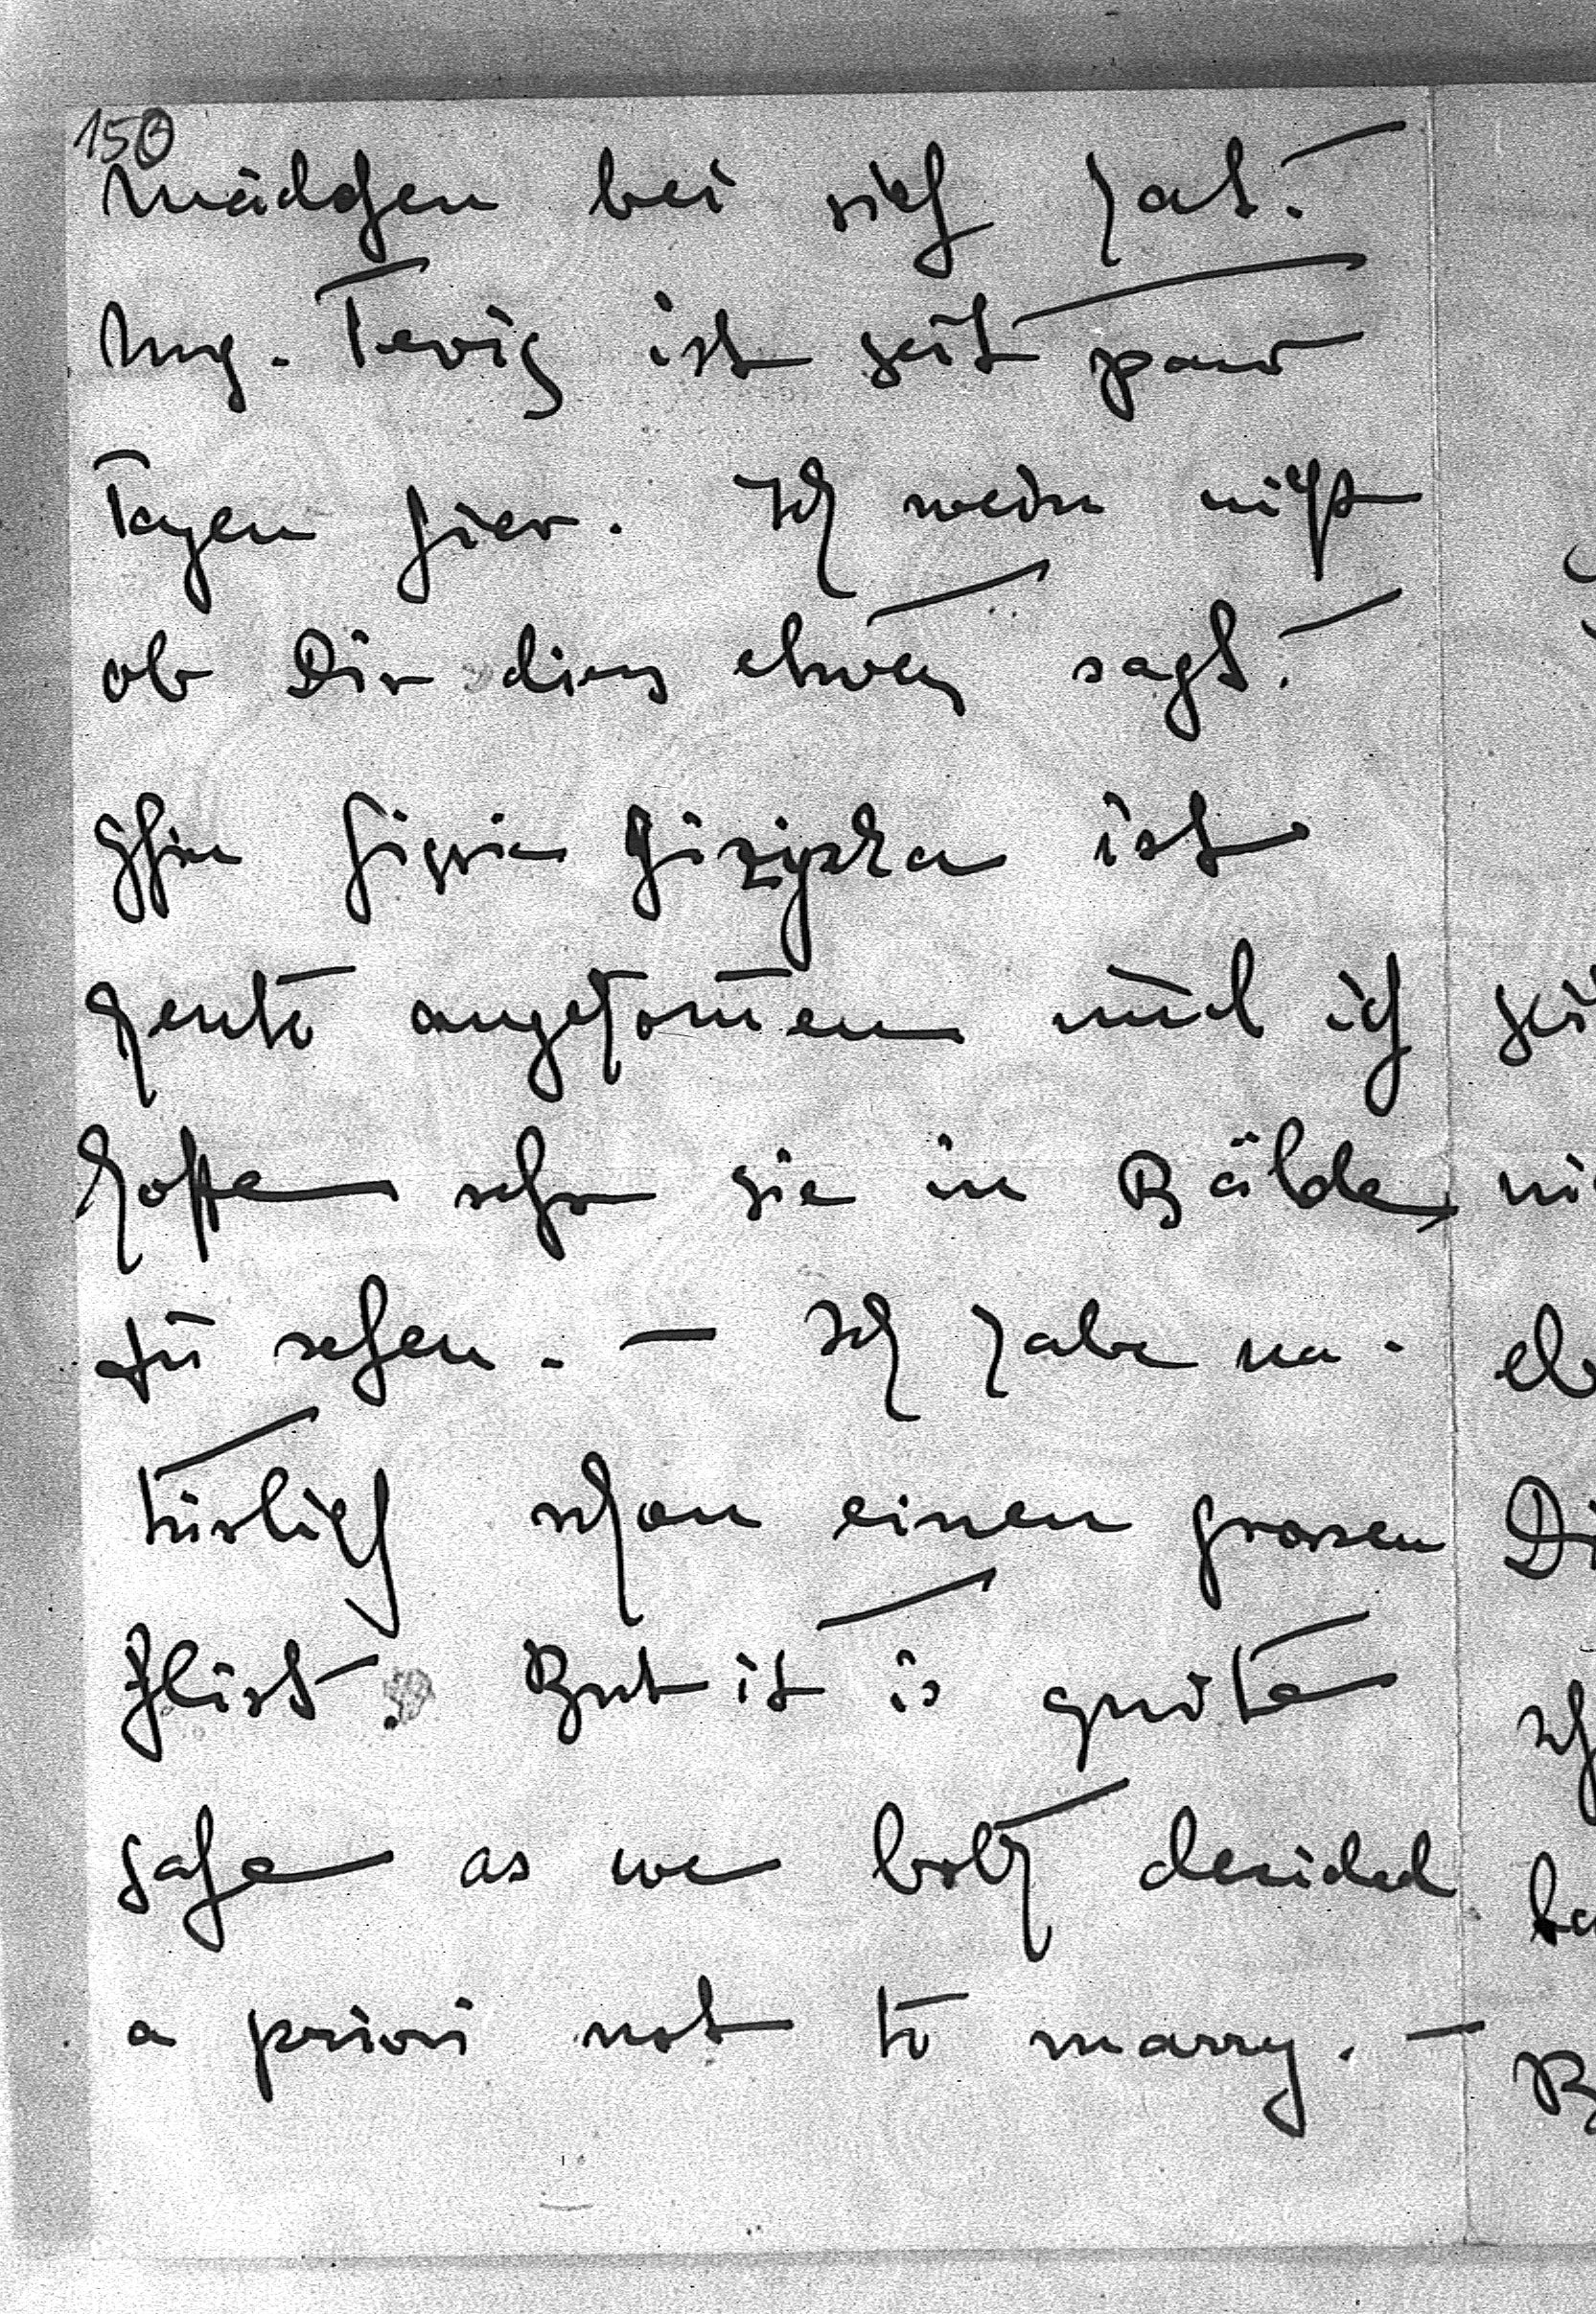 150
mädchen bei sich hat.
Mg. Tevis ist seit paar
Tagen hier. Ich weiss nicht
ob Dir dies etwas sagt.
Gfin Gizycka ist
heute angekom̅en und ich
hoffe sehr sie in Bälde
zu sehen. — Ich habe na-
türlich schon einen grossen
Flirt. But it is quite
safe as we both decided
a priori not to marry. —